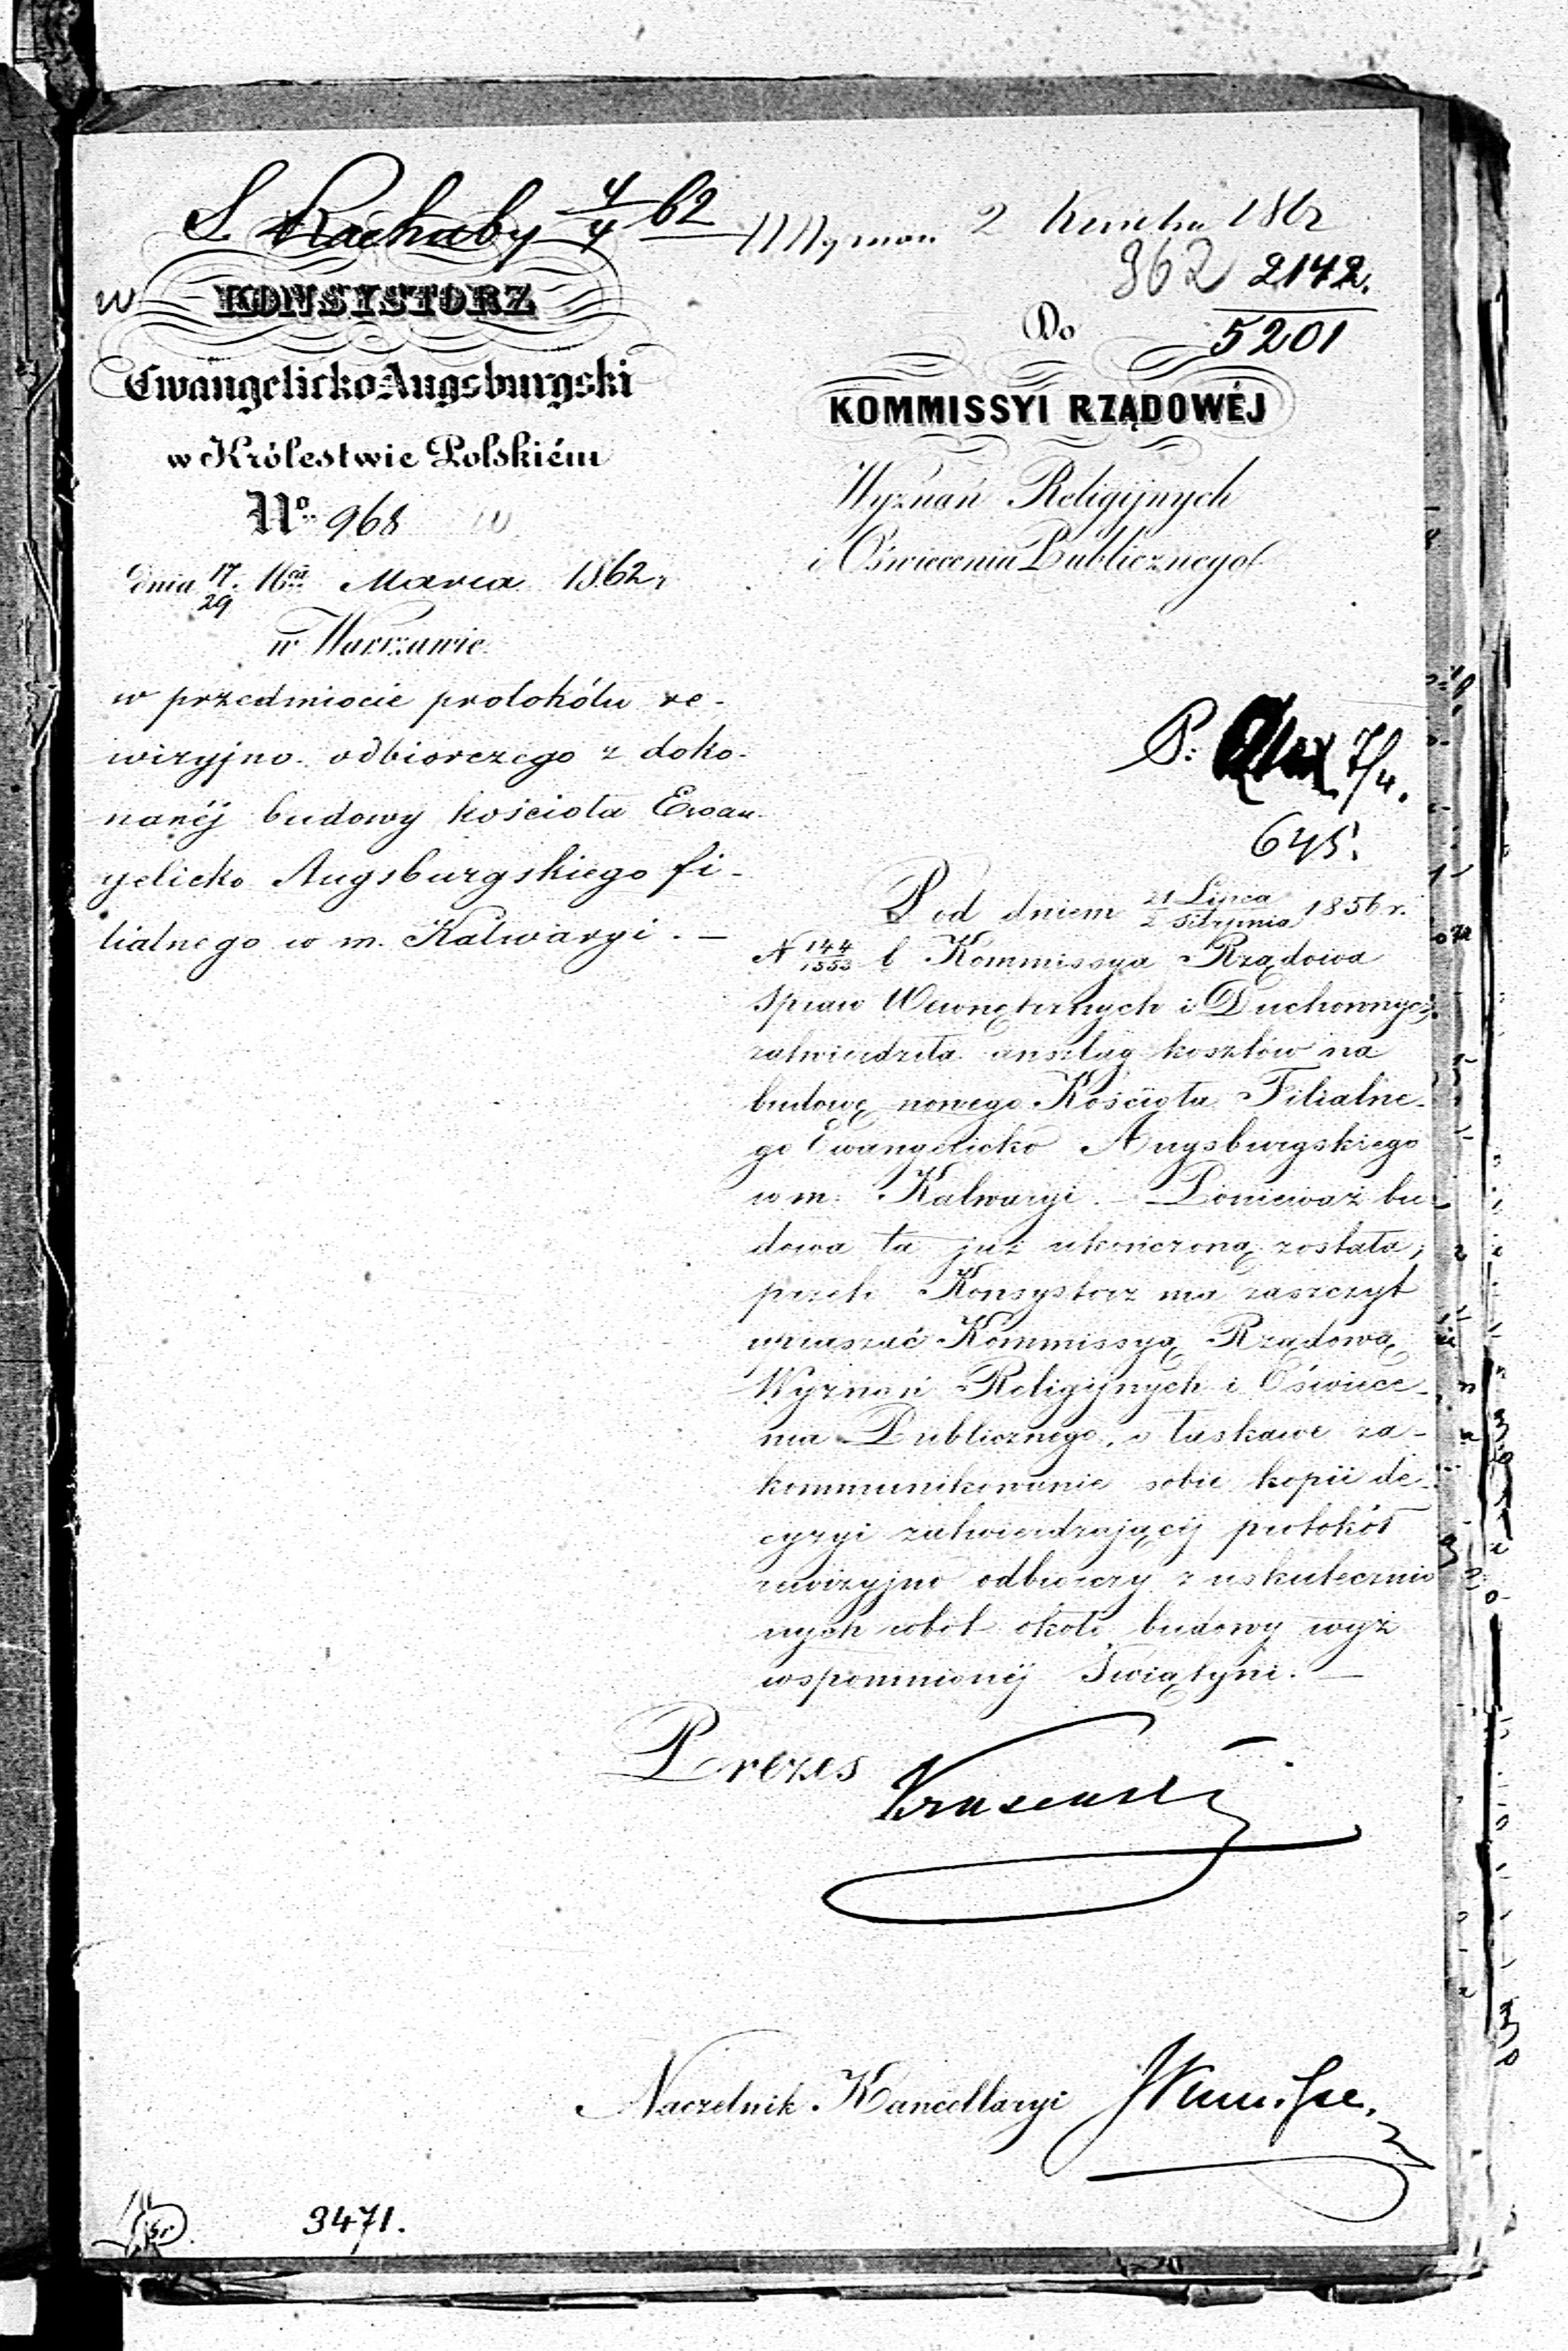 S. Rachuby 4/4 62
2 Kwietnia 1862
962 2142.
5201
w KONSYSTORZ
Ewangelicko-Augsburgski
w Królestwie Polskiém
No. 968
dnia 17/29 Marca 1862 r
w Warszawie.
w przedmiocie protokółu re-
wizyjno odbiorczego z doko-
nanéj budowy kościoła Ewan-
gelicko Augsburgskiego fi-
lialnego w m. Kalwaryi. —
Do
KOMMISSYI RZĄDOWÉJ
Wyznań Religijnych
i Oświecenia Publicznego
P: 7/4.
645.
Pod dniem 21 Lipca / 2 Sierpnia 1856 r.
N 144/1553 Kommissya Rządowa
Spraw Wewnętrznych i Duchownych
zatwierdziła anszlag kosztów na
budowę nowego Kościoła Filialne-
go Ewangelicko Augsburgskiego
w m. Kalwaryi. — Ponieważ bu-
dowa ta już ukończoną została,
przeto Konsystorz ma zaszczyt
upraszać Kommissyą Rządową
Wyznań Religijnych i Oświece-
nia Publicznego, o łaskawe za-
kommunikowanie sobie kopii de-
cyzyi zatwierdzającéj protokół
rewizyjno odbiorczy z uskutecznio
nych robót około budowy wyż
wspomnionéj Świątyni. —
Prezes
Naczelnik Kancellaryi
3471.